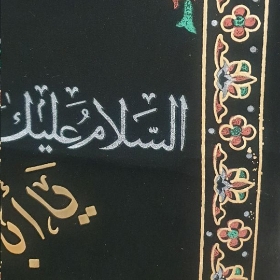 السلام عليك
يا أبا